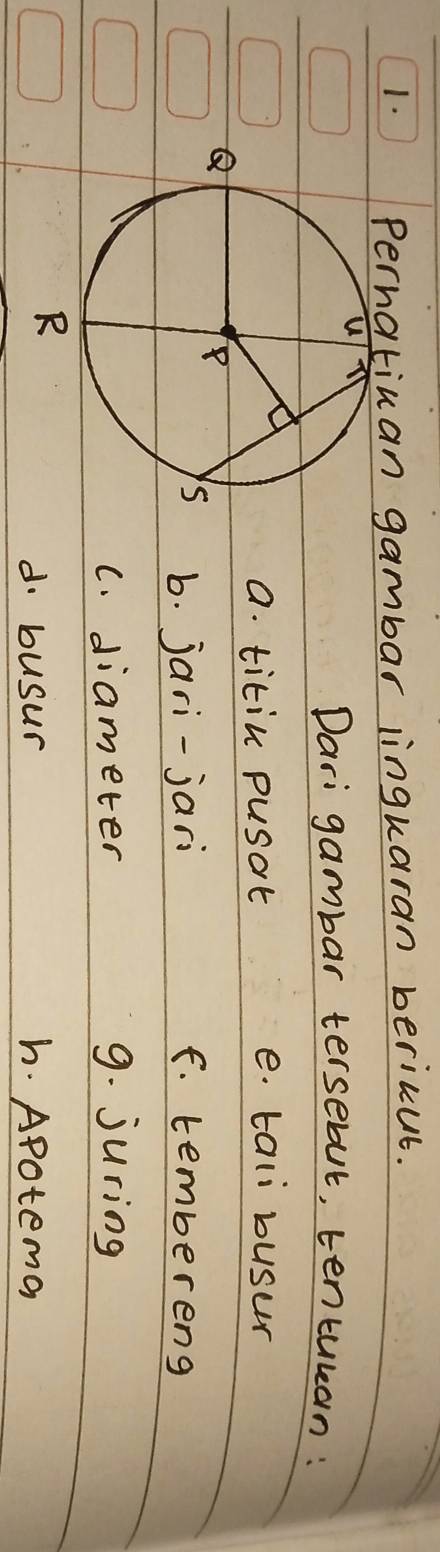 1. Perhatikan gambar lingkaran berikut.
Dari gambar tersebut, tentukan :
U T
Q P S
R
a. titik pusat e. tali busur
b. jari-jari f. tembereng
c. diameter g. juring
d. busur h. Apotema